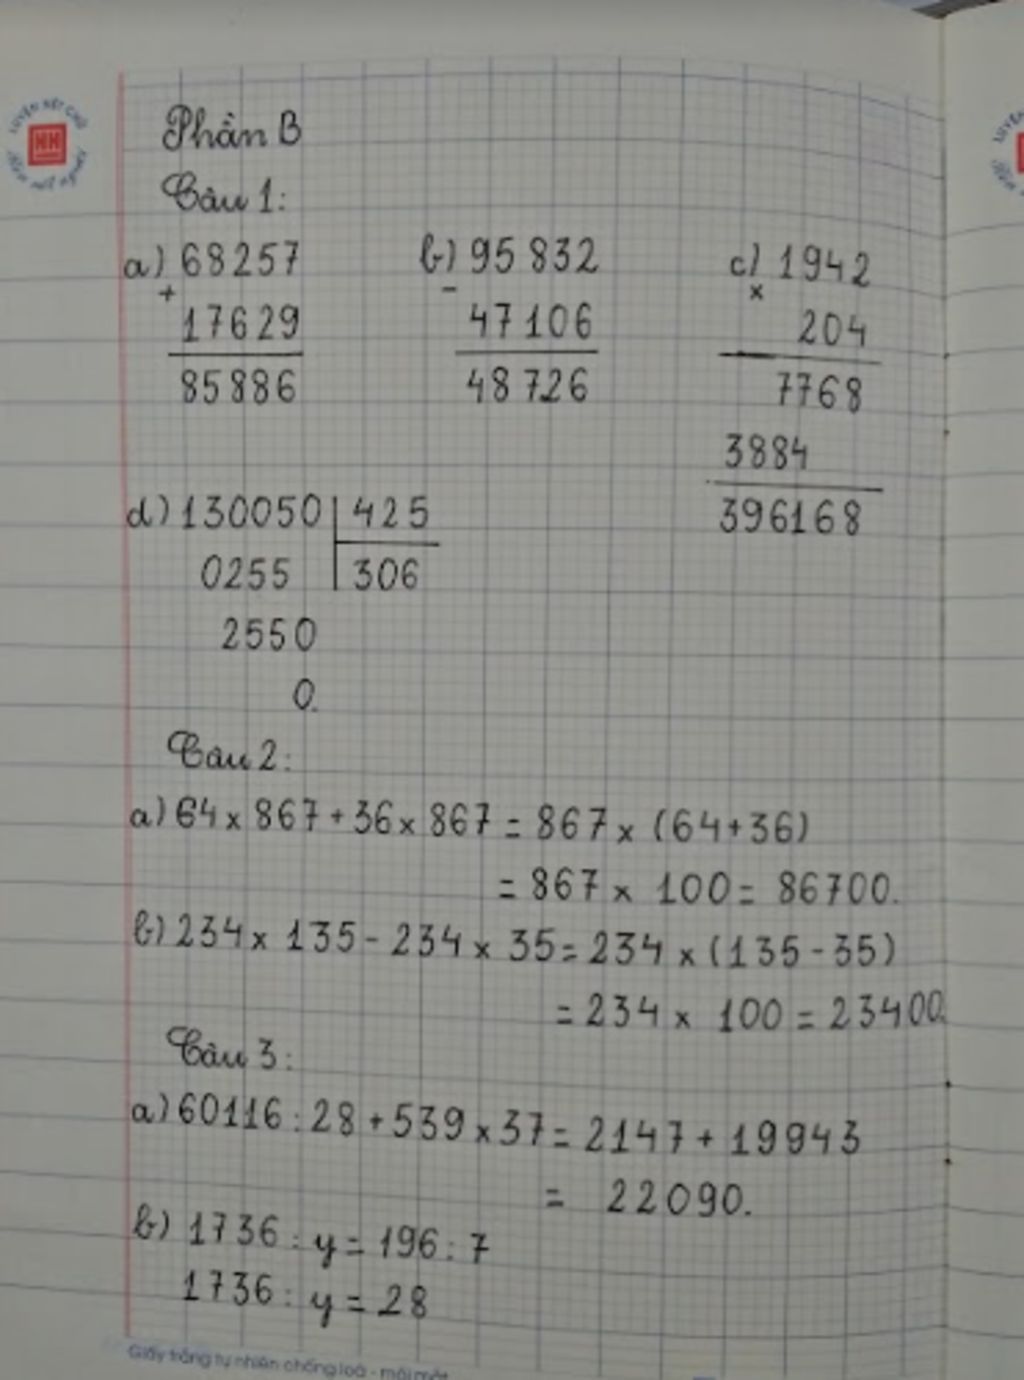 LUYỆN NÉT CHỮ
HH
Phần B
Câu 1:
a) 68257
+
17629
85886
b) 95832
-
47106
48726
c) 1942
x
204
7768
3884
396168
d) 130050 | 425
0255 | 306
2550
0.
Câu 2:
a) 64 x 867 + 36 x 867 = 867 x (64+36)
= 867 x 100 = 86700.
b) 234 x 135 - 234 x 35 = 234 x (135 - 35)
= 234 x 100 = 23400.
Câu 3:
a) 60116 : 28 + 539 x 37 = 2147 + 19943
= 22090.
b) 1736 : y = 196 : 7
1736 : y = 28
Giấy trắng tự nhiên chống loá - mỏi mắt